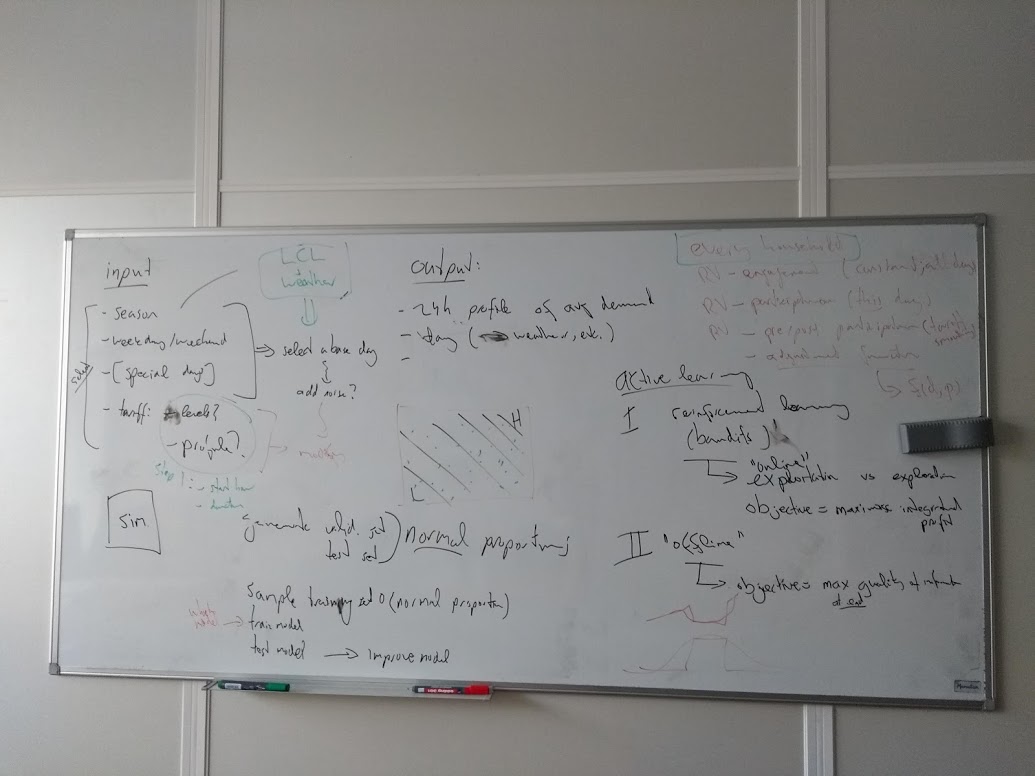 input
- season
- weekday/weekend
- [special day?]
- tariff: levels?
- profile?
select
Step 1:
- start hour
- duration
Sim
LCL
+
weather
⇒ select a base day
add noise?
output:
- 24h profile of avg demand
- day ( weather, etc.)
-
H
L
generate valid. set
test set
normal proportions
Sample training set 0 (normal proportion)
train model
test model → improve model
model →
every household
RV - engagement (constant/all days)
RV - participation (this day)
RV - pre/post participation
- adjustment function
active learning
I reinforcement learning
(bandits)
"online"
exploitation vs exploration
objective = maximise integrated
profit
II "offline"
objective = max quality of
at end